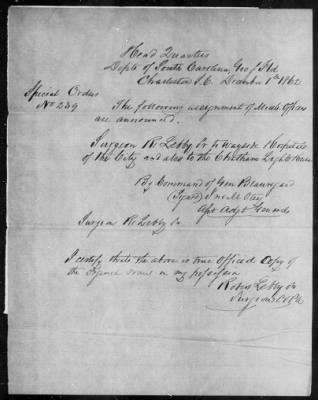 Head Quarters
Dept of South Carolina, Geo & Fla
Charleston S.C. December 1st 1862
Special Orders
No 239
The following assignment of Medl Officers
are announced.
Surgeon R. Lebby Jr to Wayside Hospitals
of the City and also to the Chatham Light
By Command of Gen Beauregard
(Signed) Jno M Otey
Asst Adjt General
Surgeon R Lebby Jr
I certify that the above is true official Copy of
the original order in my possession
Robert Lebby Jr
Surgeon